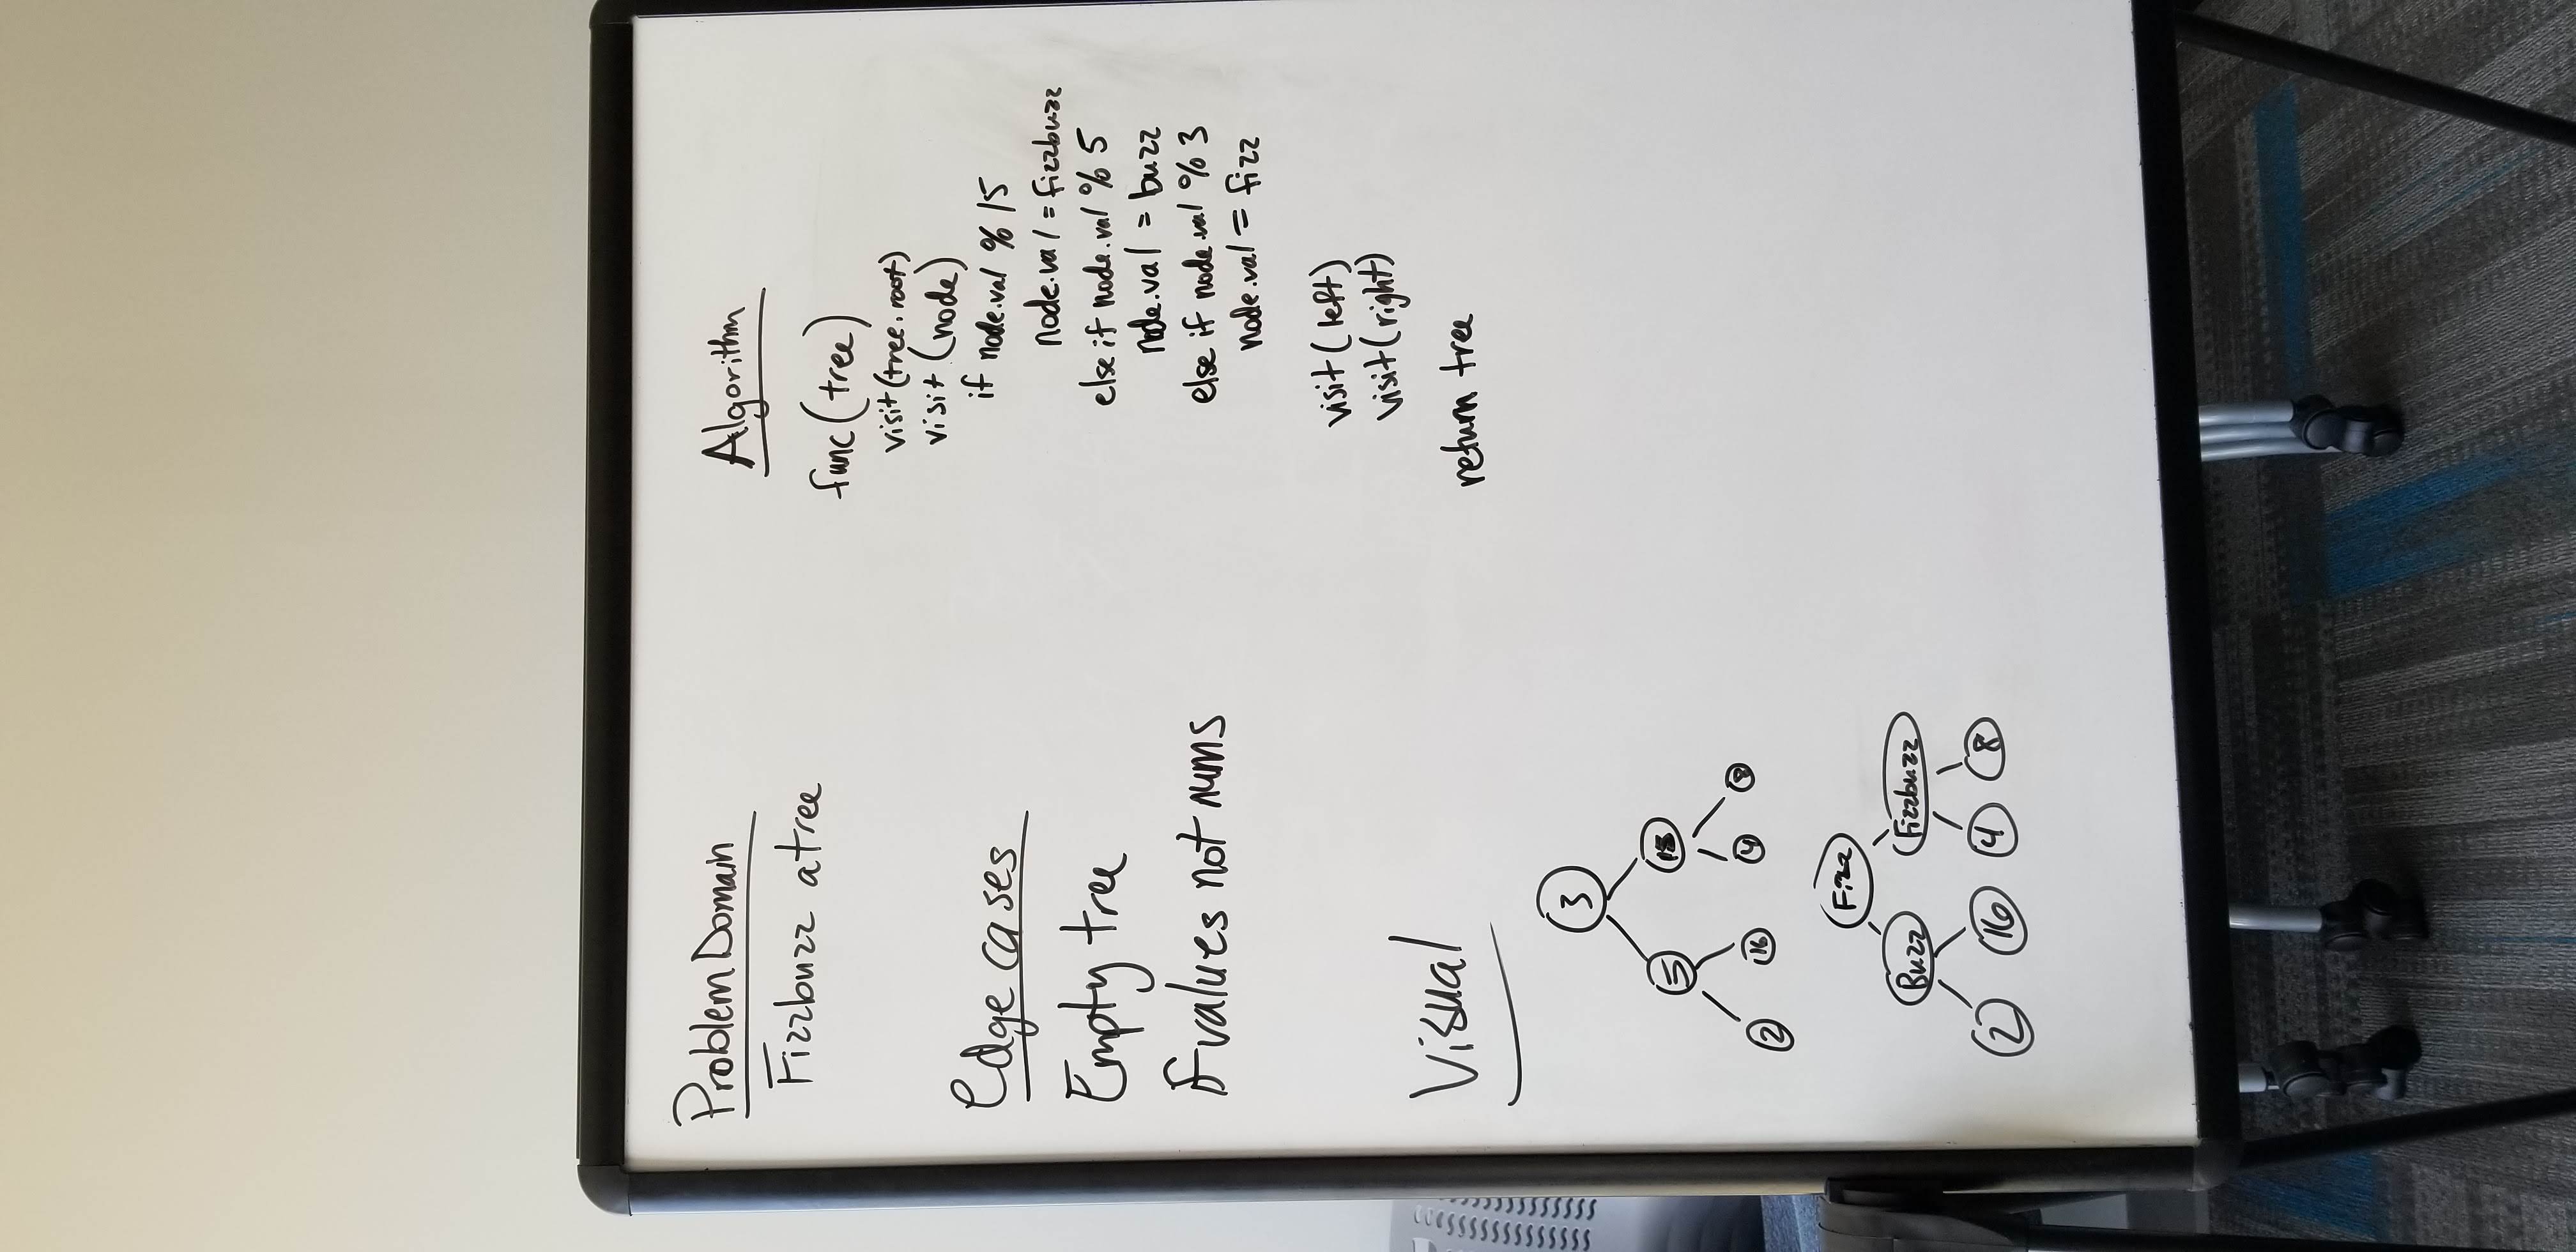 Problem Domain
Fizzbuzz a tree
Edge cases
Empty tree
if values not nums
Visual
3
5 15
2 16 4 8
Fizz
Buzz Fizzbuzz
2 16 4 8
Algorithm
func(tree)
visit(tree.root)
visit(node)
if node.val % 15
node.val = fizzbuzz
else if node.val % 5
node.val = buzz
else if node.val % 3
node.val = fizz
visit(left)
visit(right)
return tree